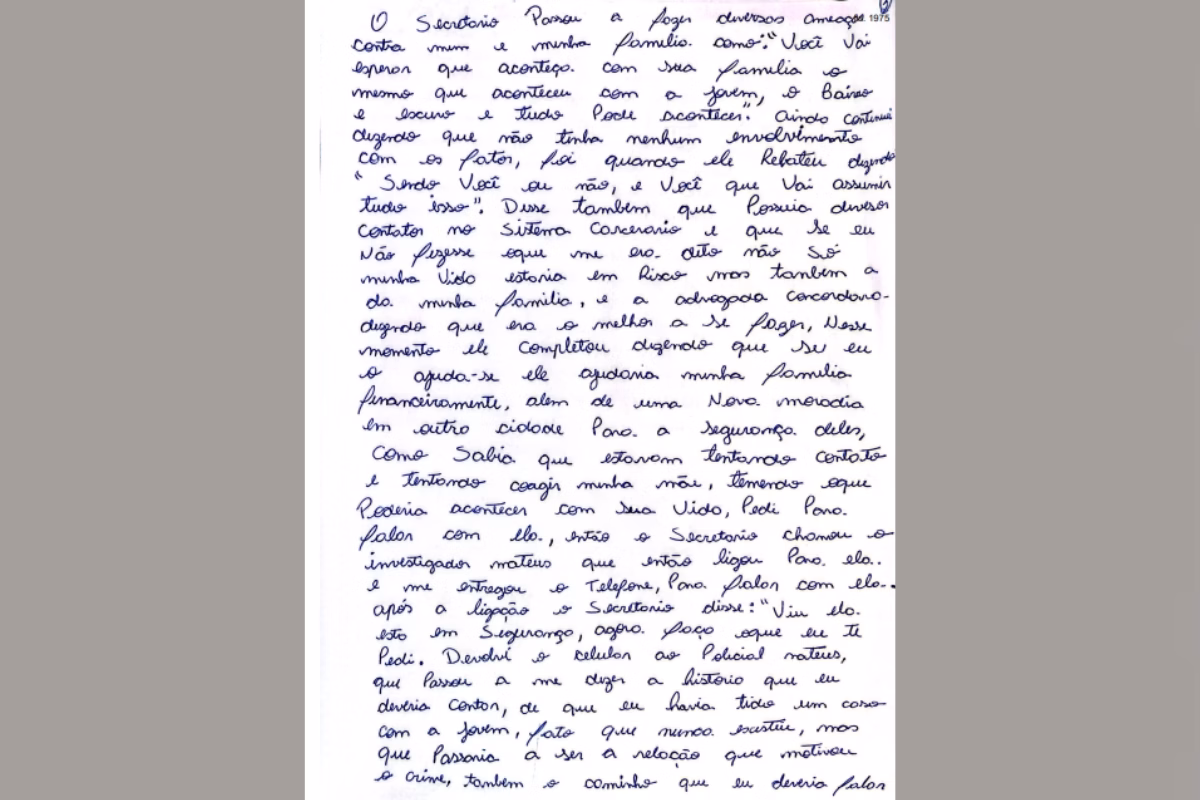 O Secretario Passou a fazer diversas ameaças
fl. 1975
contra mim e minha familia. como: "Você Vai
esperar que aconteça. com sua familia o
mesmo que aconteceu com a jovem, o Bairro
e escuro e tudo Pode acontecer". Ainda continuei
dizendo que não tinha nenhum envolvimento
com os fatos, foi quando ele Rebateu dizendo
"Sendo Você ou não, e Você que Vai assumir
tudo isso". Disse também que Possuia diversos
contatos no Sistema Carcerario e que se eu
Não fizesse oque me era. dito não Só
minha Vida estaria em Risco mas tambem a
da. minha familia, e a advogada concordava-
dizendo que era o melhor a se fazer, Nesse
momento ele completou dizendo que se eu
o ajuda-se ele ajudaria minha familia
financeiramente, alem de uma Nova moradia
em outra cidade Para. a segurança. deles,
como Sabia. que estavam tentando contato
e tentando coagir minha mãe, temendo oque
Poderia acontecer com sua Vida, Pedi Para.
falar com ela., então o Secretario chamou o
investigador mateus que então ligou Para. ela..
e me entregou o Telefone, Para. falar com ela..
após a ligação o Secretario disse: "Viu ela.
esta em Segurança, agora. faça oque eu te
Pedi. Devolvi o celular ao Policial mateus,
que Passou a me dizer a historia que eu
deveria contar, de que eu havia tido um caso
com a jovem, fato que nunca. existiu, mas
que Passaria a ser a relação que motivou
o crime, tambem o caminho que eu deveria falar